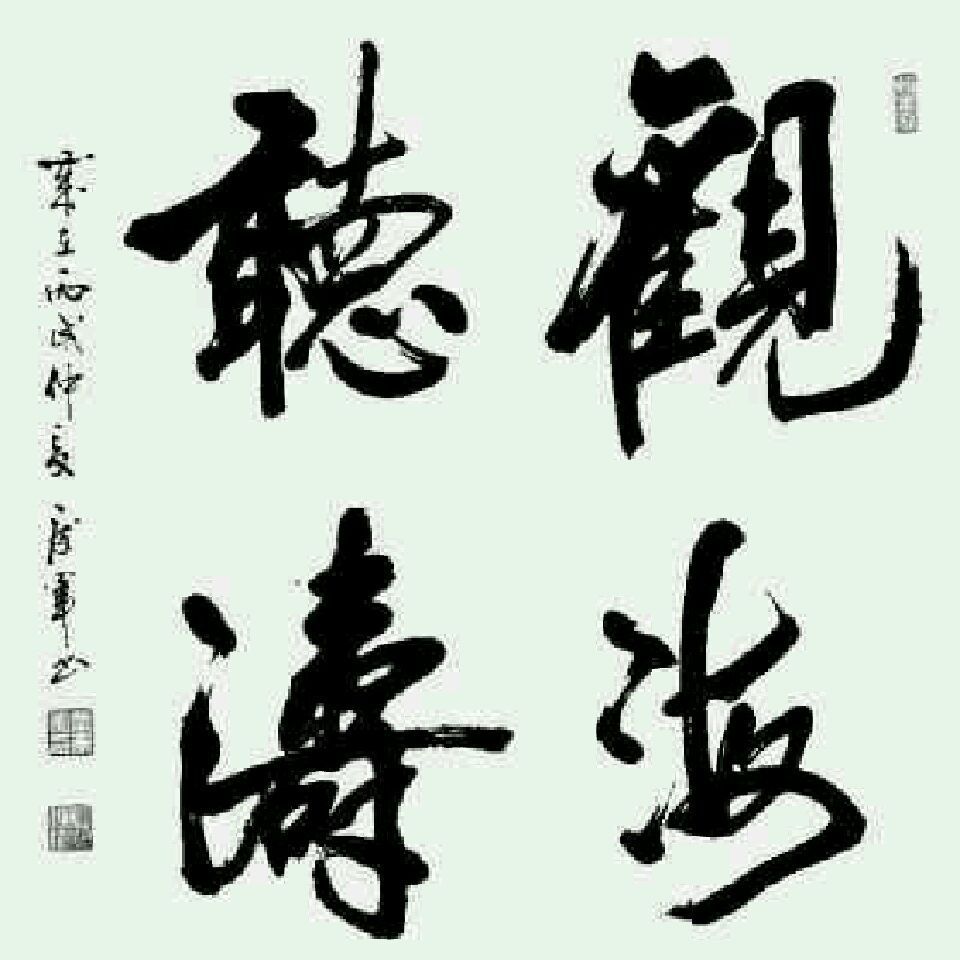 觀海
聽濤
歲在丙戌仲夏
書